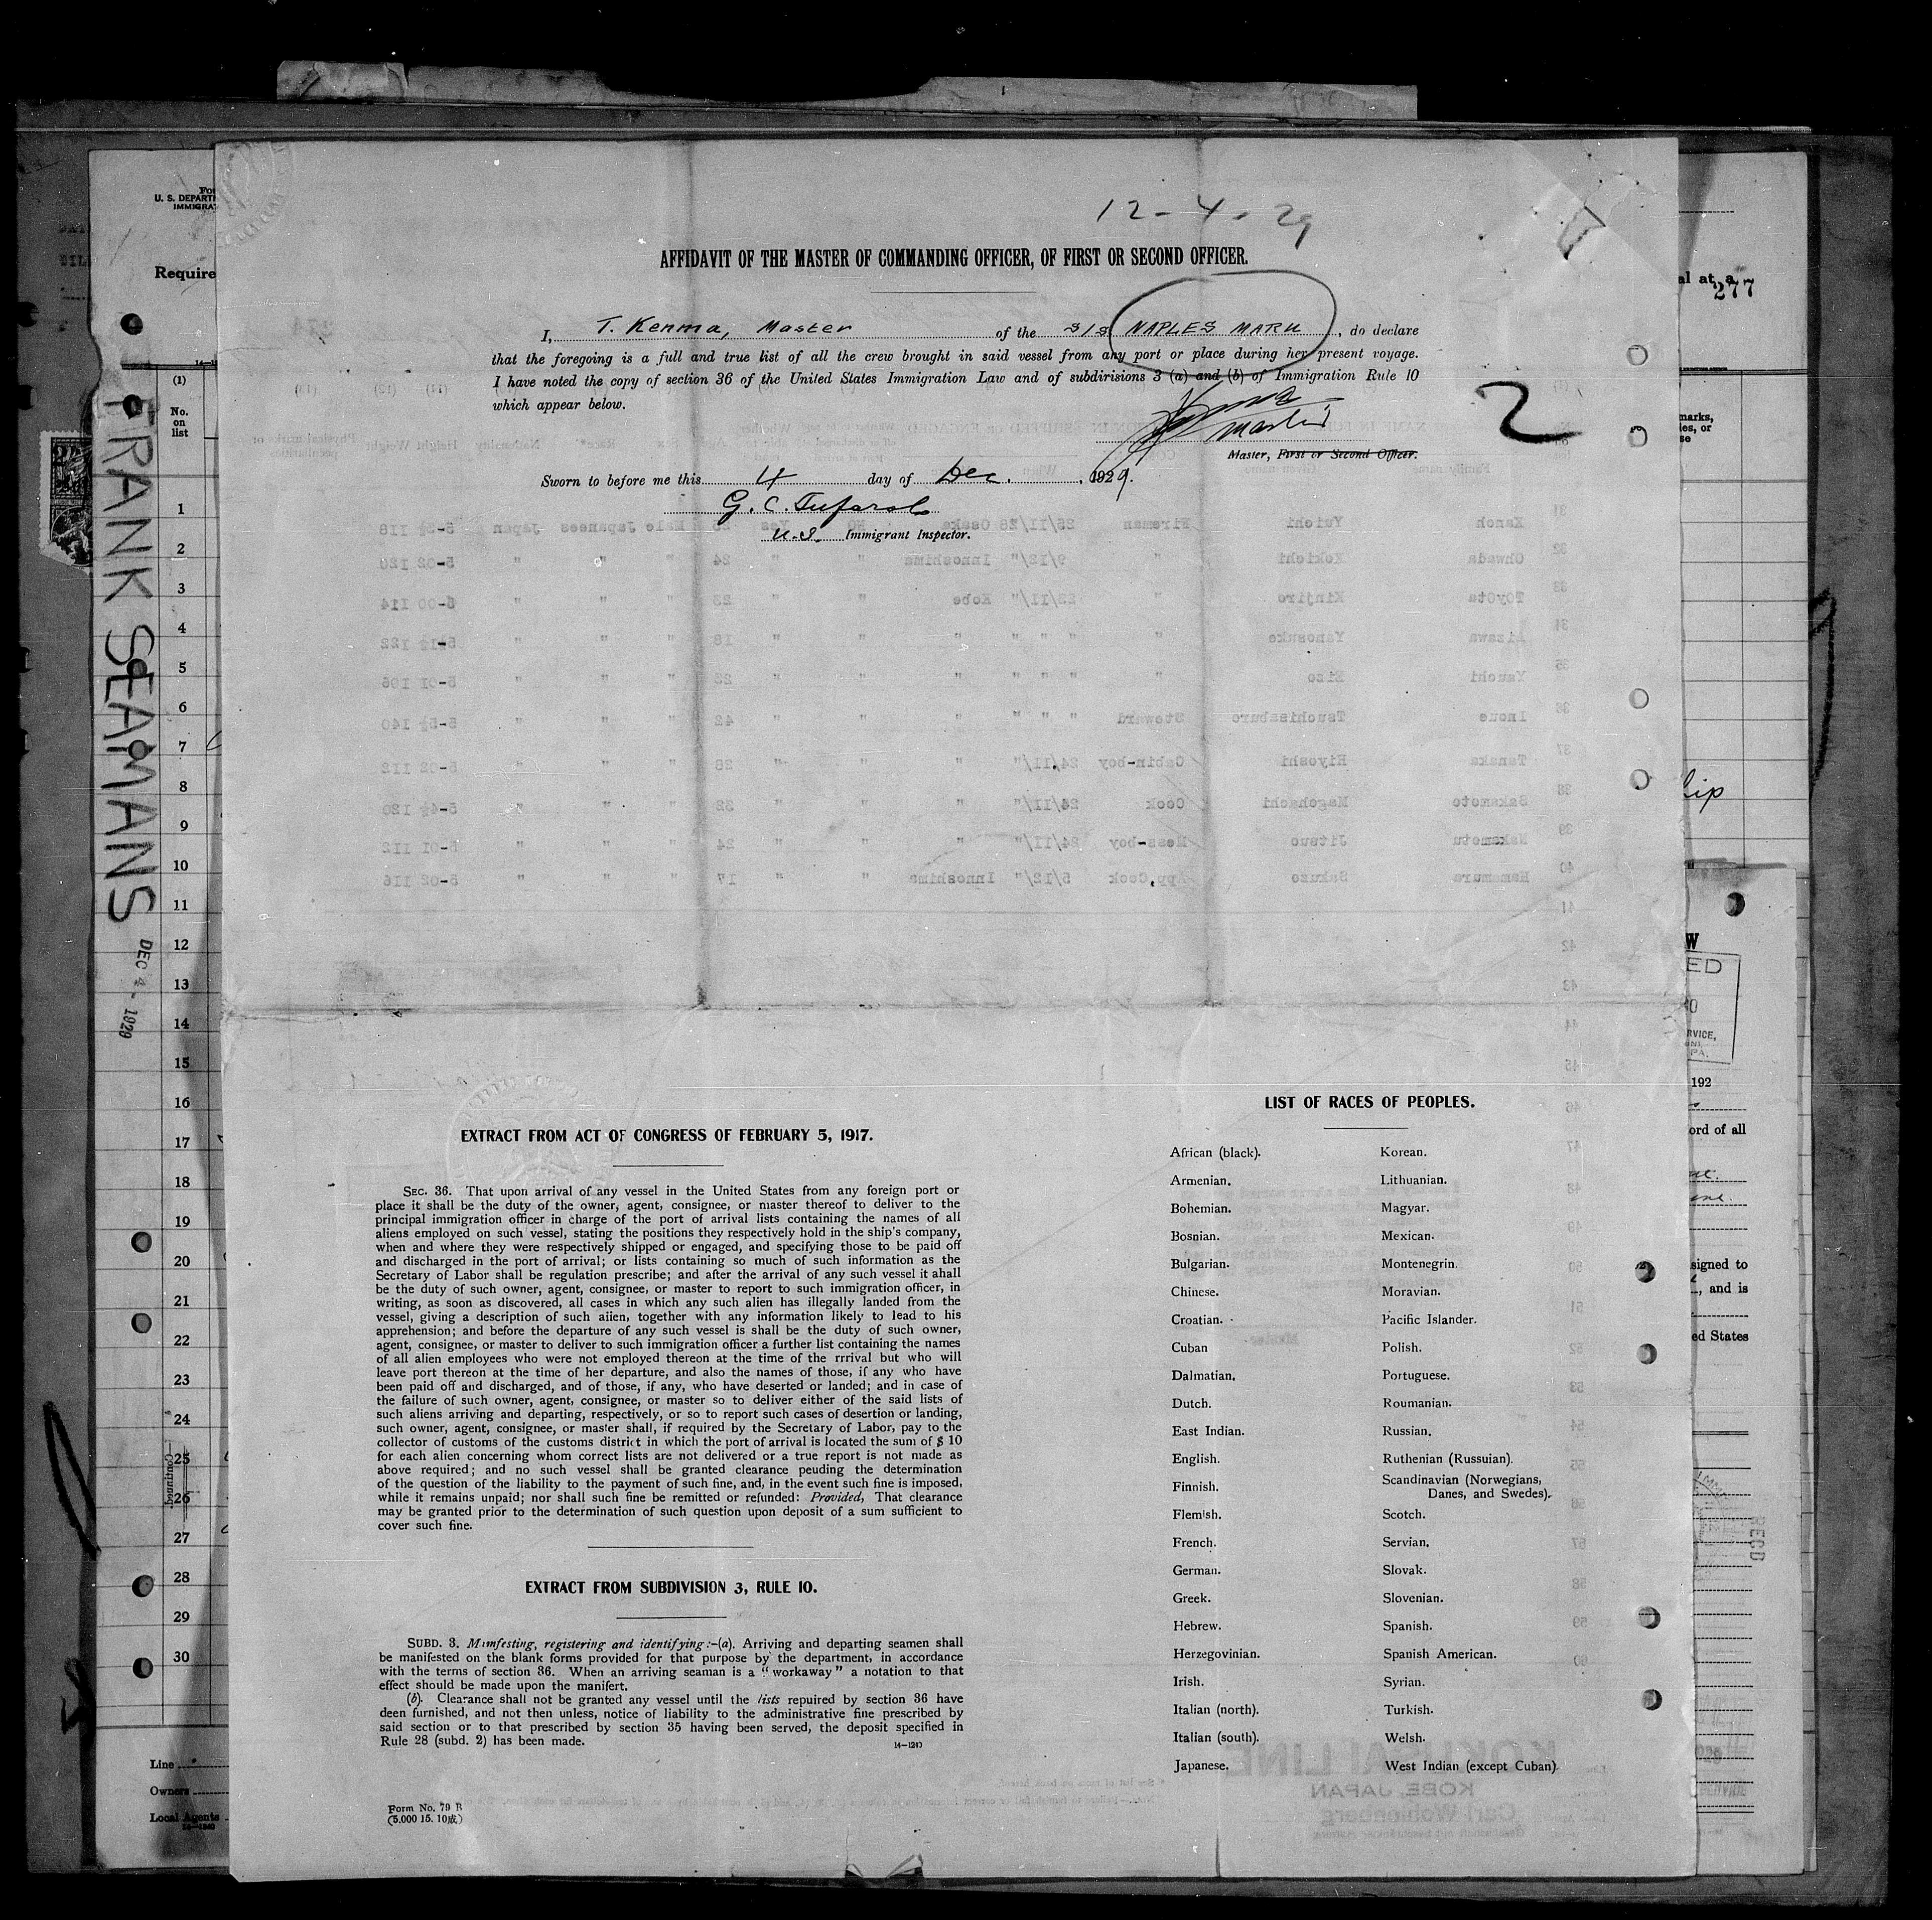 12-4-29
AFFIDAVIT OF THE MASTER OF COMMANDING OFFICER, OF FIRST OR SECOND OFFICER.
I, T. Kenma, Master of the S/S NAPLES MARU, do declare
that the foregoing is a full and true list of all the crew brought in said vessel from any port or place during her present voyage.
I have noted the copy of section 36 of the United States Immigration Law and of subdirisions 3 (a) and (b) of Immigration Rule 10
which appear below.
2
Master
Master, First or Second Officer.
Sworn to before me this 4 day of Dec., 1929.
G. C.
U.S. Immigrant Inspector.
EXTRACT FROM ACT OF CONGRESS OF FEBRUARY 5, 1917.
SEC. 36. That upon arrival of any vessel in the United States from any foreign port or
place it shall be the duty of the owner, agent, consignee, or master thereof to deliver to the
principal immigration officer in charge of the port of arrival lists containing the names of all
aliens employed on such vessel, stating the positions they respectively hold in the ship's company,
when and where they were respectively shipped or engaged, and specifying those to be paid off
and discharged in the port of arrival; or lists containing so much of such information as the
Secretary of Labor shall be regulation prescribe; and after the arrival of any such vessel it ahall
be the duty of such owner, agent, consignee, or master to report to such immigration officer, in
writing, as soon as discovered, all cases in which any such alien has illegally landed from the
vessel, giving a description of such aiien, together with any information likely to lead to his
apprehension; and before the departure of any such vessel is shall be the duty of such owner,
agent, consignee, or master to deliver to such immigration officer a further list containing the names
of all alien employees who were not employed thereon at the time of the rrrival but who will
leave port thereon at the time of her departure, and also the names of those, if any who have
been paid off and discharged, and of those, if any, who have deserted or landed; and in case of
the failure of such owner, agent, consignee, or master so to deliver either of the said lists of
such aliens arriving and departing, respectively, or so to report such cases of desertion or landing,
such owner, agent, consignee, or master shall, if required by the Secretary of Labor, pay to the
collector of customs of the customs district in which the port of arrival is located the sum of $ 10
for each alien concerning whom correct lists are not delivered or a true report is not made as
above required; and no such vessel shall be granted clearance peuding the determination
of the question of the liability to the payment of such fine, and, in the event such fine is imposed,
while it remains unpaid; nor shall such fine be remitted or refunded: Provided, That clearance
may be granted prior to the determination of such question upon deposit of a sum sufficient to
cover such fine.
EXTRACT FROM SUBDIVISION 3, RULE 10.
SUBD. 3. Manfesting, registering and identifying:-(a). Arriving and departing seamen shall
be manifested on the blank forms provided for that purpose by the department, in accordance
with the terms of section 36. When an arriving seaman is a "workaway" a notation to that
effect should be made upon the manifert.
(b). Clearance shall not be granted any vessel until the lists repuired by section 36 have
deen furnished, and not then unless, notice of liability to the administrative fine prescribed by
said section or to that prescribed by section 35 having been served, the deposit specified in
Rule 28 (subd. 2) has been made.
14-1240
Form No. 79 B
(5.000 15. 10成)
LIST OF RACES OF PEOPLES.
African (black). Korean.
Armenian. Lithuanian.
Bohemian. Magyar.
Bosnian. Mexican.
Bulgarian. Montenegrin.
Chinese. Moravian.
Croatian. Pacific Islander.
Cuban Polish.
Dalmatian. Portuguese.
Dutch. Roumanian.
East Indian. Russian.
English. Ruthenian (Russuian).
Finnish. Scandinavian (Norwegians,
Danes, and Swedes).
Flemish. Scotch.
French. Servian.
German. Slovak.
Greek. Slovenian.
Hebrew. Spanish.
Herzegovinian. Spanish American.
Irish. Syrian.
Italian (north). Turkish.
Italian (south). Welsh.
Japanese. West Indian (except Cuban).
U. S. DEPART
IMMIGRA
Require
(1)
No.
on
list
1
2
3
4
5
6
7
8
9
10
11
12
13
14
15
16
17
18
19
20
21
22
23
24
25
26
27
28
29
30
Line
Owners
Local Agents
FRANK SEAMANS
DEC 4 - 1929
al at a
277
marks,
es, or
se
hip
W
ED
RVICE,
PA.
192
ord of all
signed to
, and is
ed States
REC'D